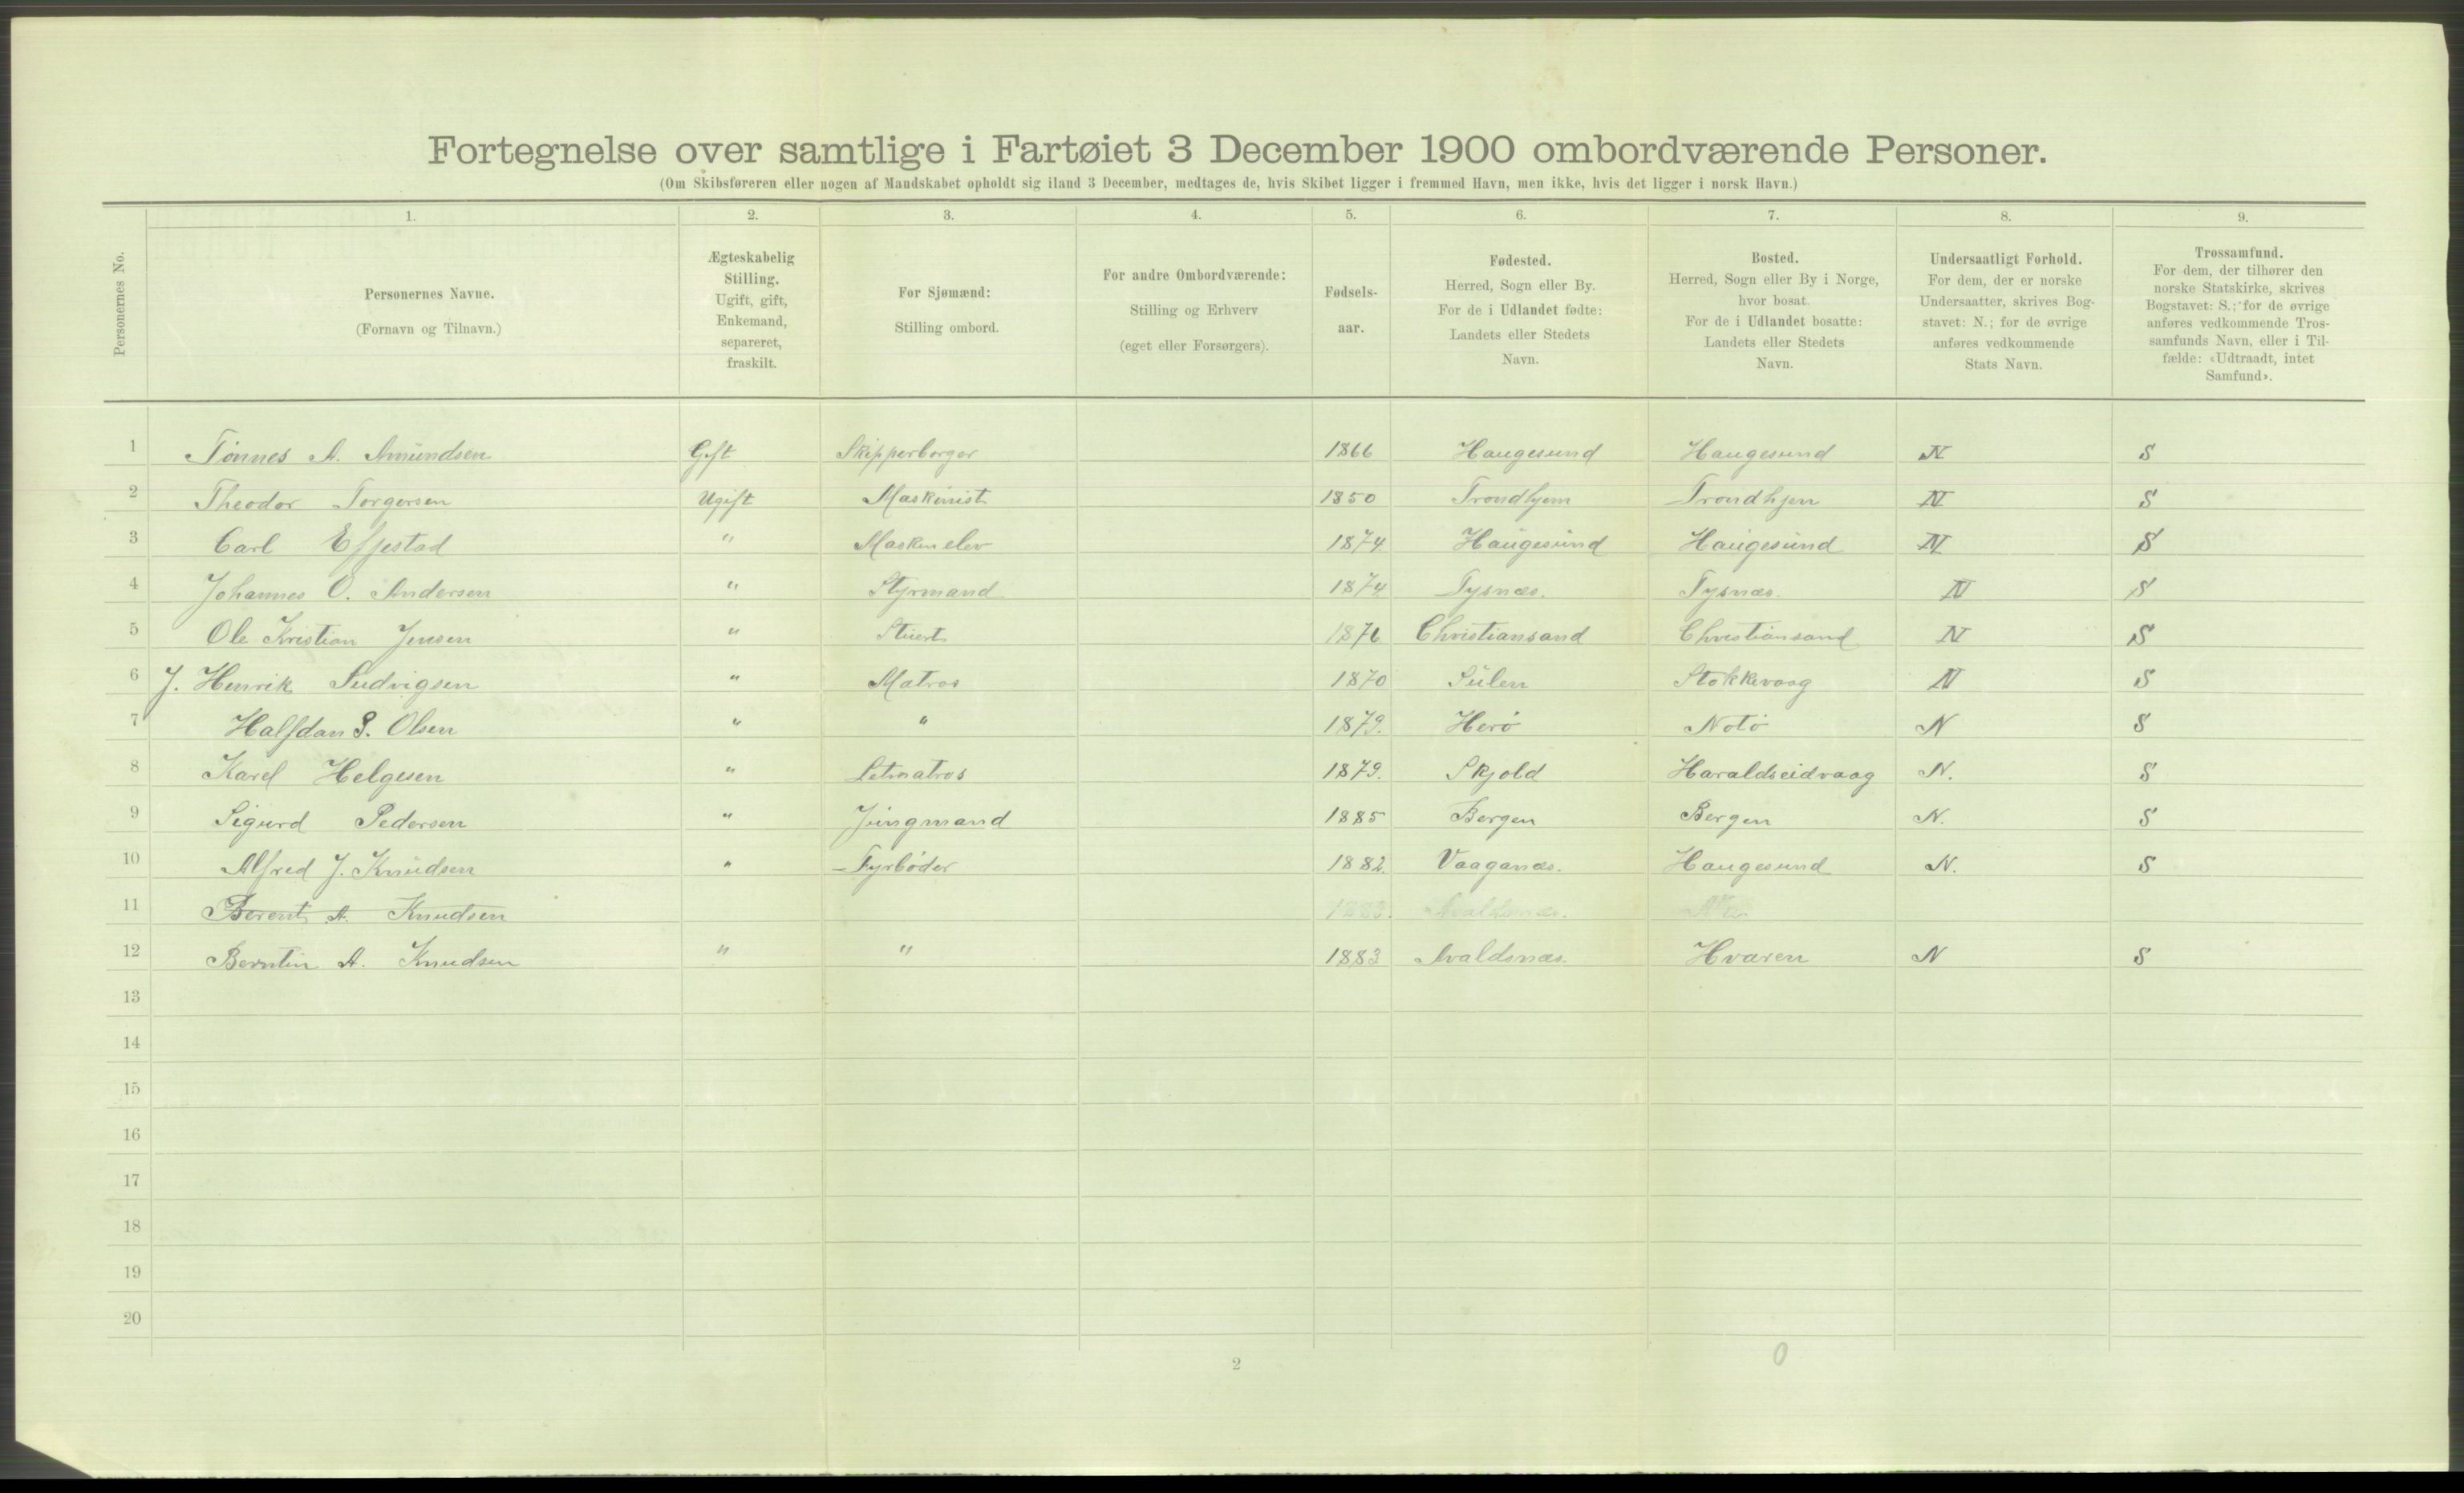 Fortegnelse over samtlige i Fartøiet 3 December 1900 ombordværende Personer.
(Om Skibsføreren eller nogen af Mandskabet opholdt sig iland 3 December, medtages de, hvis Skibet ligger i fremmed Havn, men ikke, hvis det ligger i norsk Havn.)
Personernes No.
1. 2. 3. 4. 5. 6. 7. 8. 9.
Personernes Navne.
(Fornavn og Tilnavn.)
Ægteskabelig
Stilling.
Ugift, gift,
Enkemand,
separeret,
fraskilt.
For Sjømænd:
Stilling ombord.
For andre Ombordværende:
Stilling og Erhverv
(eget eller Forsørgers).
Fødsels-
aar.
Fødested.
Herred, Sogn eller By.
For de i Udlandet fødte:
Landets eller Stedets
Navn.
Bosted.
Herred, Sogn eller By i Norge,
hvor bosat.
For de i Udlandet bosatte:
Landets eller Stedets
Navn.
Undersaatligt Forhold.
For dem, der er norske
Undersaatter, skrives Bog-
stavet: N.; for de øvrige
anføres vedkommende
Stats Navn.
Trossamfund.
For dem, der tilhører den
norske Statskirke, skrives
Bogstavet: S.; for de øvrige
anføres vedkommende Tros-
samfunds Navn, eller i Til-
fælde: «Udtraadt, intet
Samfund».
1 Tönnes A. Amundsen Gift Skipperborger 1866 Haugesund Haugesund N S
2 Theodor Torgersen Ugift Maskinist 1850 Trondhjem Trondhjen N S
3 Carl Effestad " Maskinelev 1874 Haugesund Haugesund N S
4 Johannes O. Andersen " Styrmand 1874 Tysnæs. Tysnæs. N S
5 Ole Kristian Jensen " Stuert 1876 Christiansand Christiansand N S
6 J. Henrik Ludvigsen " Matros 1870 Sulen Stokkevaag N S
7 Halfdan S. Olsen " " 1879. Herö Notö N S
8 Karel Helgesen " Letmatros 1879. Skjold Haraldseidvaag N. S
9 Sigurd Pedersen " Jungmand 1885 Bergen Bergen N. S
10 Alfred J. Knudsen " Fyrböder 1882. Vaaganæs. Haugesund N. S
11 Berent A. Knudsen 1883. Avaldsnæs.
12 Berntin A. Knudsen " " 1883 Avaldsnæs. Hvaren N S
13
14
15
16
17
18
19
20
2
0